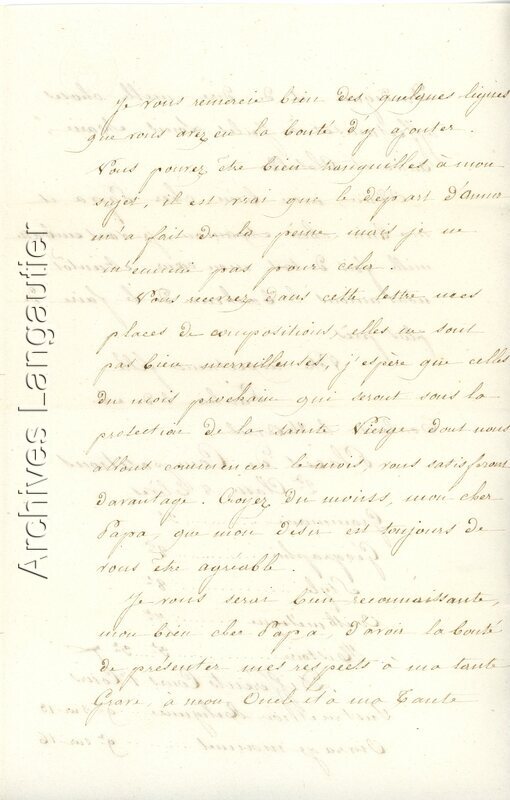 Je vous remercie bien des quelques lignes
que vous avez eu la bonté d'y ajouter.
Vous pouvez être bien tranquilles à mon
sujet, il est vrai que le départ d'Anna
m'a fait de la peine, mais je ne
m'ennuie pas pour cela.
Vous recevrez dans cette lettre mes
places de compositions, elles ne sont
pas bien merveilleuses, j'espère que celles
du mois prochain qui seront sous la
protection de la sainte Vierge dont nous
allons commencer le mois, vous satisferont
davantage. Croyez du moins, mon cher
Papa, que mon désir est toujours de
vous être agréable.
Je vous serai bien reconnaissante,
mon bien cher Papa, d'avoir la bonté
de présenter mes respects à ma tante
à mon Oncle et à ma Tante
Archives Langautier